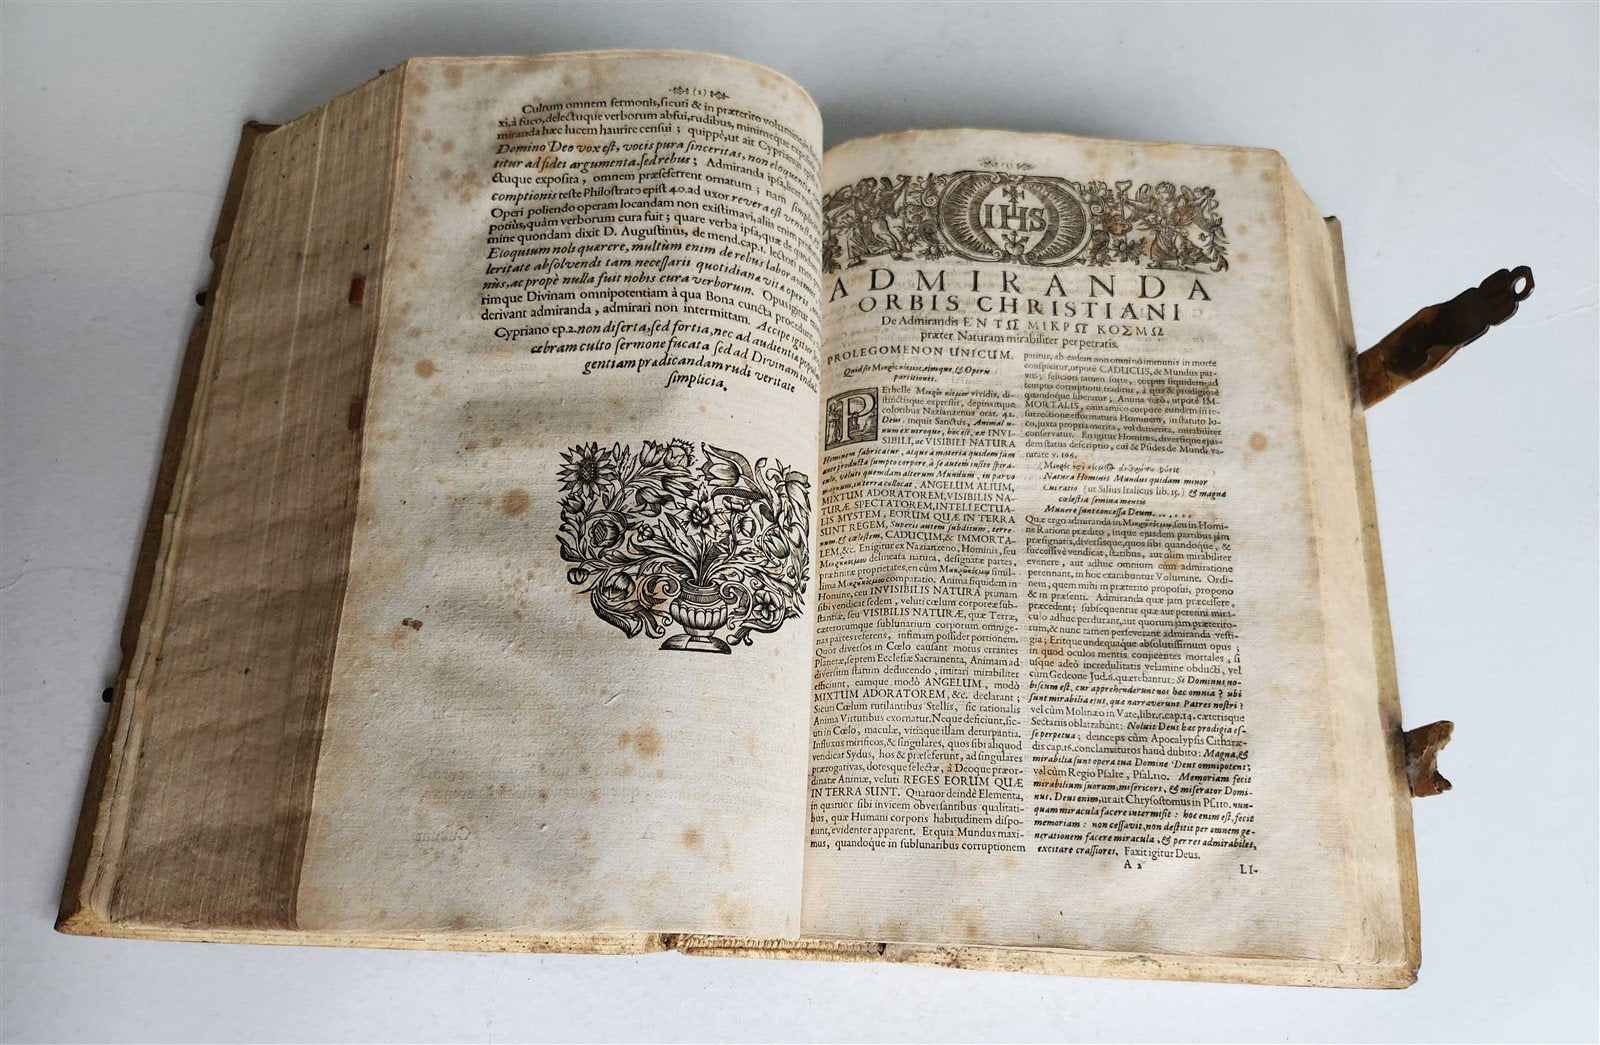 (2)
Cultum omnem sermonis, sicuti & in præterito volumine
xi, à fuco, delectuque verborum absui, rudibus, minimeque
miranda hæc lucem haurire censui; quippè, ut ait Cyprianus
Domino Deo vox est, vocis pura sinceritas, non eloquentiæ
titur ad fidei argumenta, sed rebus; Admiranda ipsa, licet
ctuque exposita, omnem præseferrent ornatum; nam
comptionis teste Philostrato epist 40. ad uxor. revera est
Operi poliendo operam locandam non existimavi, alii enim
potiùs, quàm verborum cura fuit; quare verba ipsa, quæ de
mine quondam dixit D. Augustinus, de mend. cap. 1. lectori
Eloquium noli quærere, multùm enim de rebus laboravimus
leritate absolvendi tam necessarii quotidiana vita operis
nùs, ac propè nulla fuit nobis cura verborum. Opus igitur
rimque Divinam omnipotentiam à qua Bona cuncta procedunt
derivant admiranda, admirari non intermittam. Accipe igitur
Cypriano ep. 2. non diserta, sed fortia, nec ad audientia popularis
cebram culto sermone fucata sed ad Divinam indul-
gentiam prædicandam rudi veritate
simplicia.
(3)
IHS
ADMIRANDA
ORBIS CHRISTIANI
De Admirandis ΕΝ ΤΩ ΜΙΚΡΩ ΚΟΣΜΩ
præter Naturam mirabiliter perpetratis.
PROLEGOMENON UNICUM.
Quid sit Μικρὸς κόσμος, ejusque, & Operis
partitiones.
PErbelle Μικρὸν κόσμον vividis, di-
stinctisque expressit, depinxitque
coloribus Nazianzenus orat. 42.
Deus, inquit Sanctus, Animal u-
num ex utroque, hoc est, ex INVI-
SIBILI, ac VISIBILI NATURA
Hominem fabricatur, atque à materia quidem jam
ante producta sumpto corpore, à se autem insito spira-
culo, veluti quemdam alterum Mundum, in parvo
magnum, in terra collocat, ANGELUM ALIUM,
MIXTUM ADORATOREM, VISIBILIS NA-
TURÆ SPECTATOREM, INTELLECTUA-
LIS MYSTEM, EORUM QUÆ IN TERRA
SUNT REGEM, Superis autem subditum, terre-
num & cælestem, CADUCUM, & IMMORTA-
LEM, &c. En igitur ex Nazianzeno, Hominis, seu
Μικροκόσμου delineata natura, designatæ partes,
præfinitæ proprietates, en cùm Μακροκόσμῳ simil-
lima Μικροκόσμου comparatio. Anima siquidem in
Homine, ceu INVISIBILIS NATURA primam
sibi vendicat sedem, veluti cœlum corporeæ sub-
stantiæ, seu VISIBILIS NATURÆ, quæ Terræ,
cæterorumque sublunarium corporum omnige-
nas partes referens, infimam possidet portionem.
Quos diversos in Cœlo causant motus errantes
Planetæ, septem Ecclesiæ Sacramenta, Animam ad
diversum statum deducendo, imitari mirabiliter
efficiunt, eamque modò ANGELUM, modò
MIXTUM ADORATOREM, &c. declarant;
Sicuti Cœlum rutilantibus Stellis, sic rationalis
Anima Virtutibus exornatur. Neque deficiunt, sic-
uti in Cœlo, maculæ, vitiaque illam deturpantia.
Influxus mirificos, & singulares, quos sibi aliquod
vendicat Sydus, hos & præseferunt, ad singulares
prærogativas, dotesque selectæ, à Deoque præor-
dinatæ Animæ, veluti REGES EORUM QUÆ
IN TERRA SUNT. Quatuor deindè Elementa,
in quatuor sibi invicem obversantibus qualitati-
bus, quæ Humani corporis habitudinem dispo-
nunt, evidenter apparent. Et quia Mundus maxi-
mus, quandoque in sublunaribus corruptionem
patitur, ab eadem non omninò immunis in morte
conspicitur, utpotè CADUCUS, & Mundus par-
vus; feliciori tamen sorte, corpus siquidem ad
tempus corruptioni traditur, à qua & prodigiosè
quandoque liberatur; Anima verò, utpotè IM-
MORTALIS, cum amico corpore eundem in re-
surrectione efformatura Hominem, in statuto lo-
co, juxta propria merita, vel demerita, mirabiliter
conservatur. En igitur Hominis, diversisque ejus-
dem status descriptio, cui & Pisides de Munda va-
nitate v. 166.
Μικρὸς τις κόσμος ἀνθρώπου φύσις
Natura Hominis Mundus quidam minor
Cui ratio (ut Silius Italicus lib. 15.) & magna
cœlestia semina mentis
Munere sunt concessa Deum......
Quæ ergo admiranda in Μικροκόσμῳ, seu in Homi-
ne Ratione prædito, inque ejusdem partibus jam
præsignatis, diversisque, quos sibi quandoque, &
successivè vendicat, statibus, aut olim mirabiliter
evenere, aut adhuc omnium cùm admiratione
perennant, in hoc exarabuntur Volumine. Ordi-
nem, quem mihi in præterito proposui, propono
& in præsenti. Admiranda quæ jam præcessere,
præcedent; subsequentur quæ aut perenni mira-
culo adhuc perdurant, aut quorum jam præterito-
rum, & nunc tamen perseverant admiranda vesti-
gia; Eritque undequaque absolutissimum opus;
in quod oculos mentis conjicentes mortales, si
usque adeò incredulitatis velamine obducti, vel
cùm Gedeone Jud. 6. quærebantur: Si Dominus no-
biscum est, cur apprehenderunt nos hæc omnia? ubi
sunt mirabilia ejus, quæ narraverunt Patres nostri?
vel cùm Molinæo in Vate, lib. 1. cap. 14. cæterisque
Sectariis oblatrabant: Noluit Deus hæc prodigia es-
se perpetua; deinceps cùm Apocalypsis Citharæ-
dis cap. 16. conclamaturos haud dubito: Magna, &
mirabilia sunt opera tua Domine Deus omnipotens;
vel cùm Regio Psalte, Psal. 110. Memoriam fecit
mirabilium suorum, misericors, & miserator Domi-
nus. Deus enim, ut ait Chrysostomus in Ps. 110. nun-
quam miracula facere intermisit: hoc enim est, fecit
memoriam: non cessavit, non destitit per omnem ge-
nerationem facere miracula, & per res admirabiles,
excitare crassiores. Faxit igitur Deus.
A 2
LI-